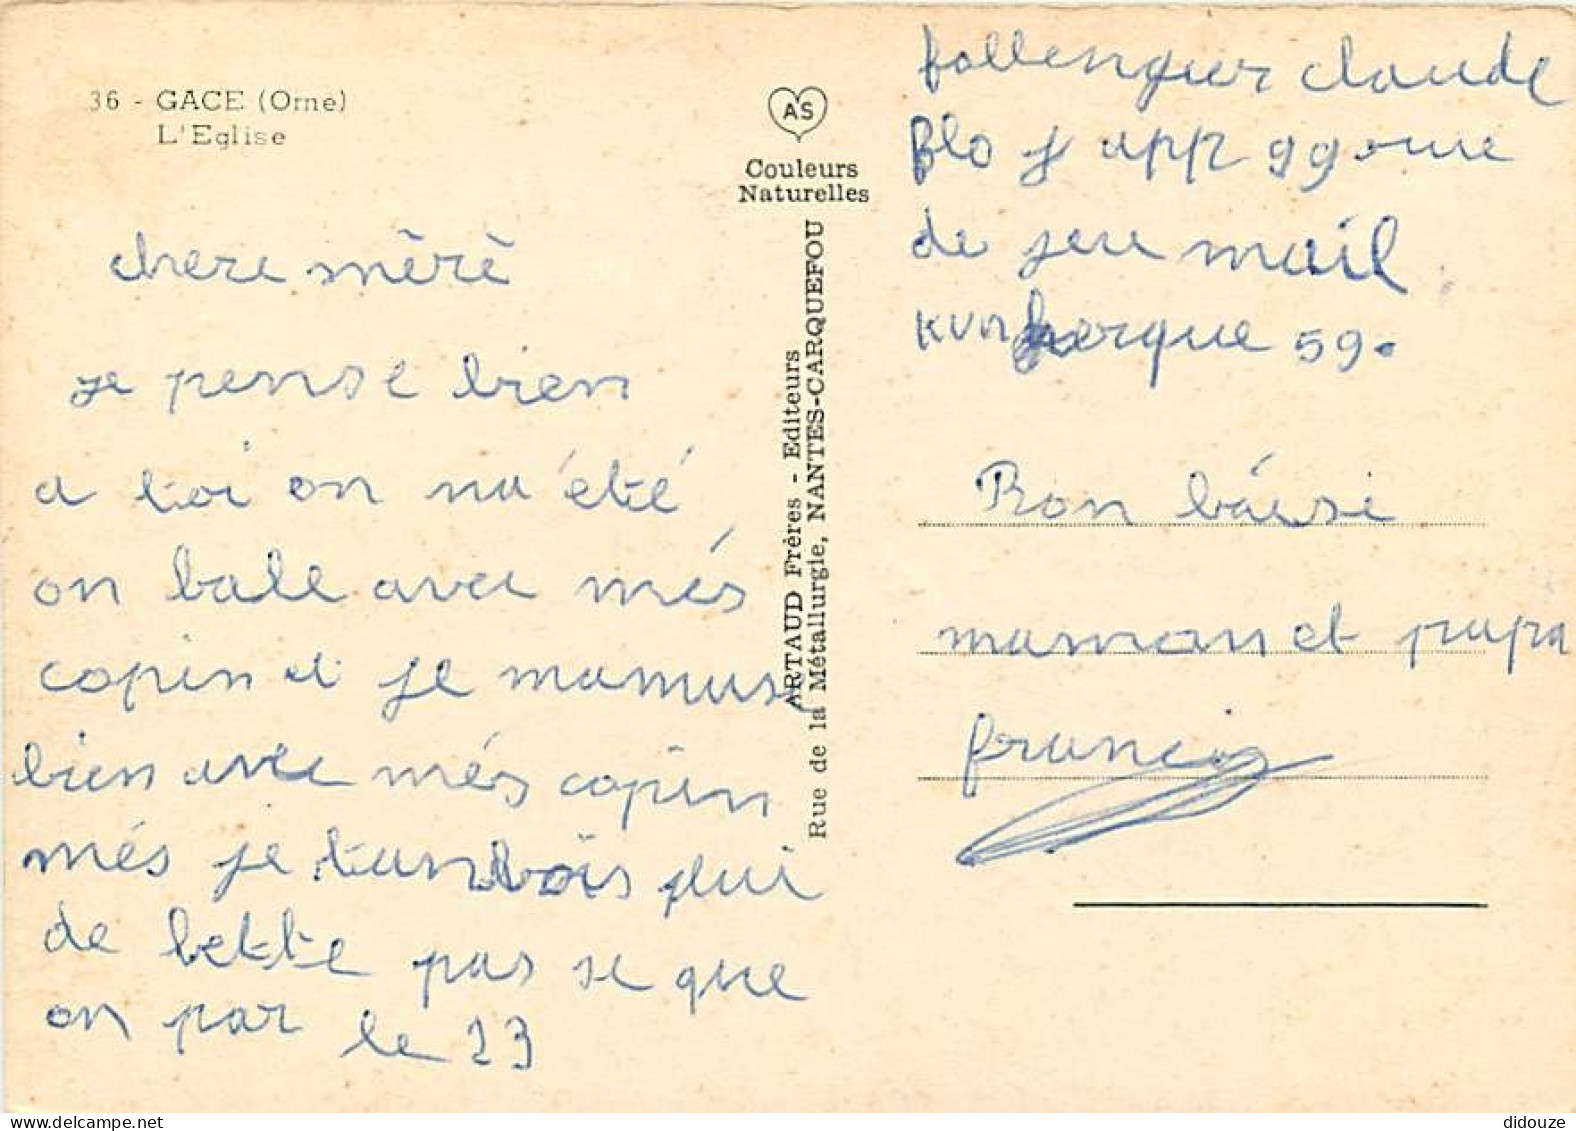 36 - GACE (Orne)
L'Eglise
chere mère
je pense bien
a toi on na été
on bale avec més
copin et je mamuse
bien avec més copin
més je tanvois plui
de lettre pas se que
on par le 23
A S
Couleurs
Naturelles
ARTAUD Frères - Editeurs
Rue de la Métallurgie, NANTES-CARQUEFOU
follenguer claude
Blo J app 99
de jeu mail
59.
Bon baise
maman et papa
francis
didouze